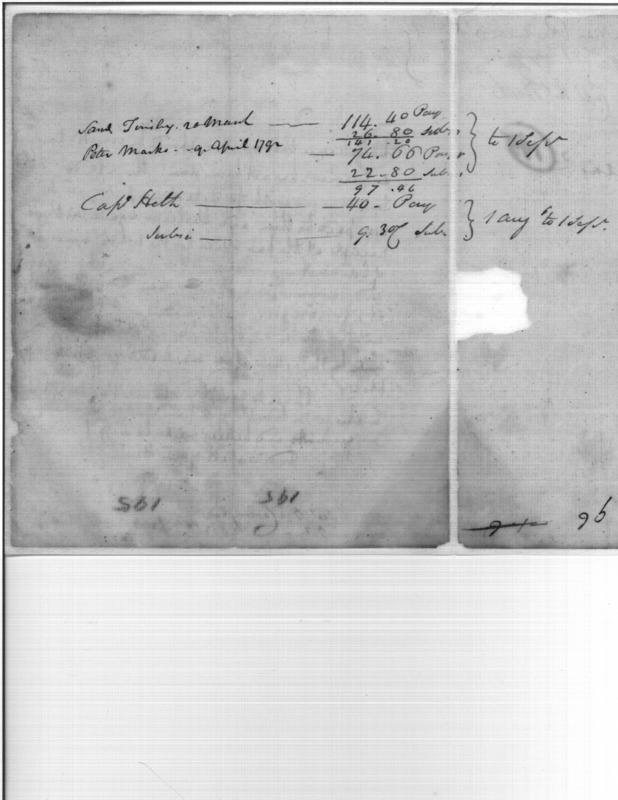 Saml Tinsley. 20 March — 114. 40 Pay
26. 80 Subs. } to 1 Sepr
141 . 20
Peter Marks - - 9. April 1792 — 74. 66 Pay
22 - 80 Subs.
97 . 46
Capt Heth — 40 - Pay } 1 aug to 1 Sepr.
Subsi — 9. 30 Subs
195
195
96